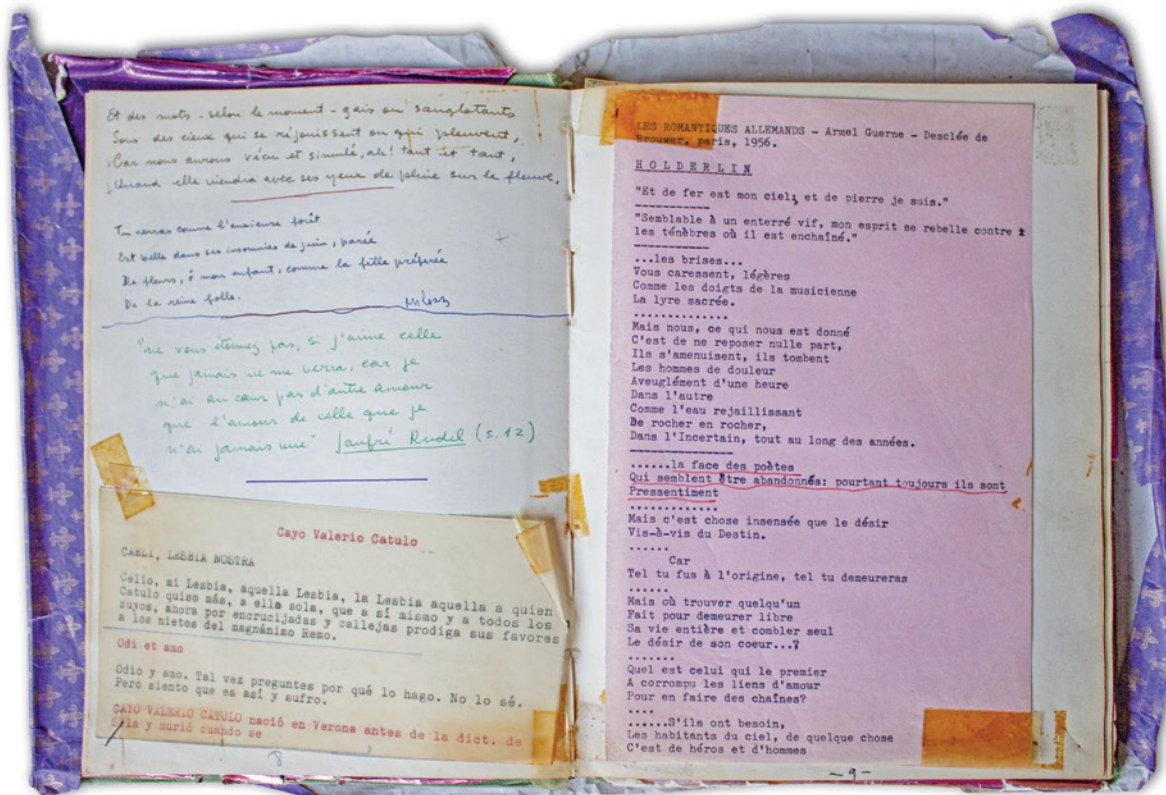 Et des mots - selon le moment - gais ou sanglotants
Sous des cieux qui se réjouissent ou qui pleuvent,
Car nous aurons vécu et simulé, ah! tant et tant,
Quand elle viendra avec ses yeux de pluie sur le fleuve.
Tu verras comme l'ancienne forêt
Est belle dans ses insomnies de juin, parée
De fleurs, ô mon enfant, comme la fille préférée
De la reine folle.
Milosz
"ne vous étonnez pas, si j'aime celle
que jamais ne me verra, car je
n'ai au cœur pas d'autre amour
que l'amour de celle que je
n'ai jamais vue" Jaufré Rudel (s. 12)
Cayo Valerio Catulo
CAELI, LESBIA NOSTRA
Celio, mi Lesbia, aquella Lesbia, la Lesbia aquella a quien
Catulo quiso más, a ella sola, que a sí mismo y a todos los
suyos, ahora por encrucijadas y callejas prodiga sus favores
a los nietos del magnánimo Remo.
Odi et amo
Odio y amo. Tal vez preguntes por qué lo hago. No lo sé.
Pero siento que es así y sufro.
CAYO VALERIO CATULO nació en Verona antes de la dict. de
Sila y murió cuando se
8
LES ROMANTIQUES ALLEMANDS - Armel Guerne - Desclée de
Brouwer, paris, 1956.
HOLDERLIN
"Et de fer est mon ciel, et de pierre je suis."
-----------
"Semblable à un enterré vif, mon esprit se rebelle contre
les ténèbres où il est enchaîné."
-----------
...les brises...
Vous caressent, légères
Comme les doigts de la musicienne
La lyre sacrée.
.............
Mais nous, ce qui nous est donné
C'est de ne reposer nulle part,
Ils s'amenuisent, ils tombent
Les hommes de douleur
Aveuglément d'une heure
Dans l'autre
Comme l'eau rejaillissant
De rocher en rocher,
Dans l'Incertain, tout au long des années.
---------------
......la face des poètes
Qui semblent être abandonnés: pourtant toujours ils sont
Pressentiment
.............
Mais c'est chose insensée que le désir
Vis-à-vis du Destin.
......
Car
Tel tu fus à l'origine, tel tu demeureras
......
Mais où trouver quelqu'un
Fait pour demeurer libre
Sa vie entière et combler seul
Le désir de son coeur...?
.......
Quel est celui qui le premier
A corrompu les liens d'amour
Pour en faire des chaînes?
....
......S'ils ont besoin,
Les habitants du ciel, de quelque chose
C'est de héros et d'hommes
-9-